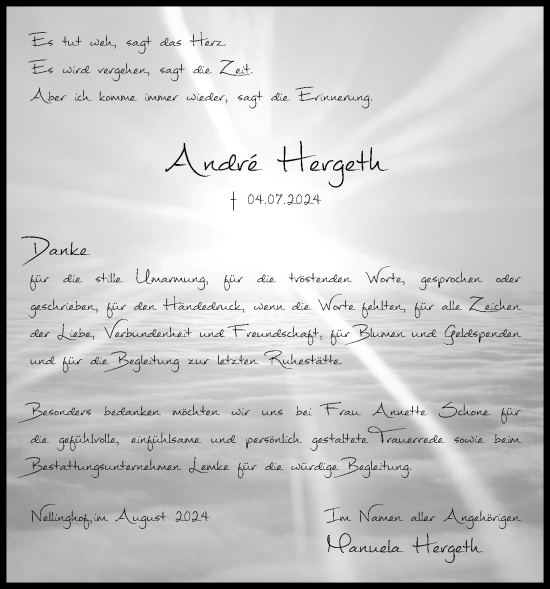 Es tut weh, sagt das Herz
Es wird vergehen, sagt die Zeit.
Aber ich komme immer wieder, sagt die Erinnerung.
André Hergeth
† 04.07.2024
Danke
für die stille Umarmung, für die tröstenden Worte, gesprochen oder
geschrieben, für den Händedruck, wenn die Worte fehlten, für alle Zeichen
der Liebe, Verbundenheit und Freundschaft, für Blumen und Geldspenden
und für die Begleitung zur letzten Ruhestätte.
Besonders bedanken möchten wir uns bei Frau Annette Schone für
die gefühlvolle, einfühlsame und persönlich gestaltete Trauerrede sowie beim
Bestattungsunternehmen Lemke für die würdige Begleitung.
Nellinghof, im August 2024
Im Namen aller Angehörigen
Manuela Hergeth